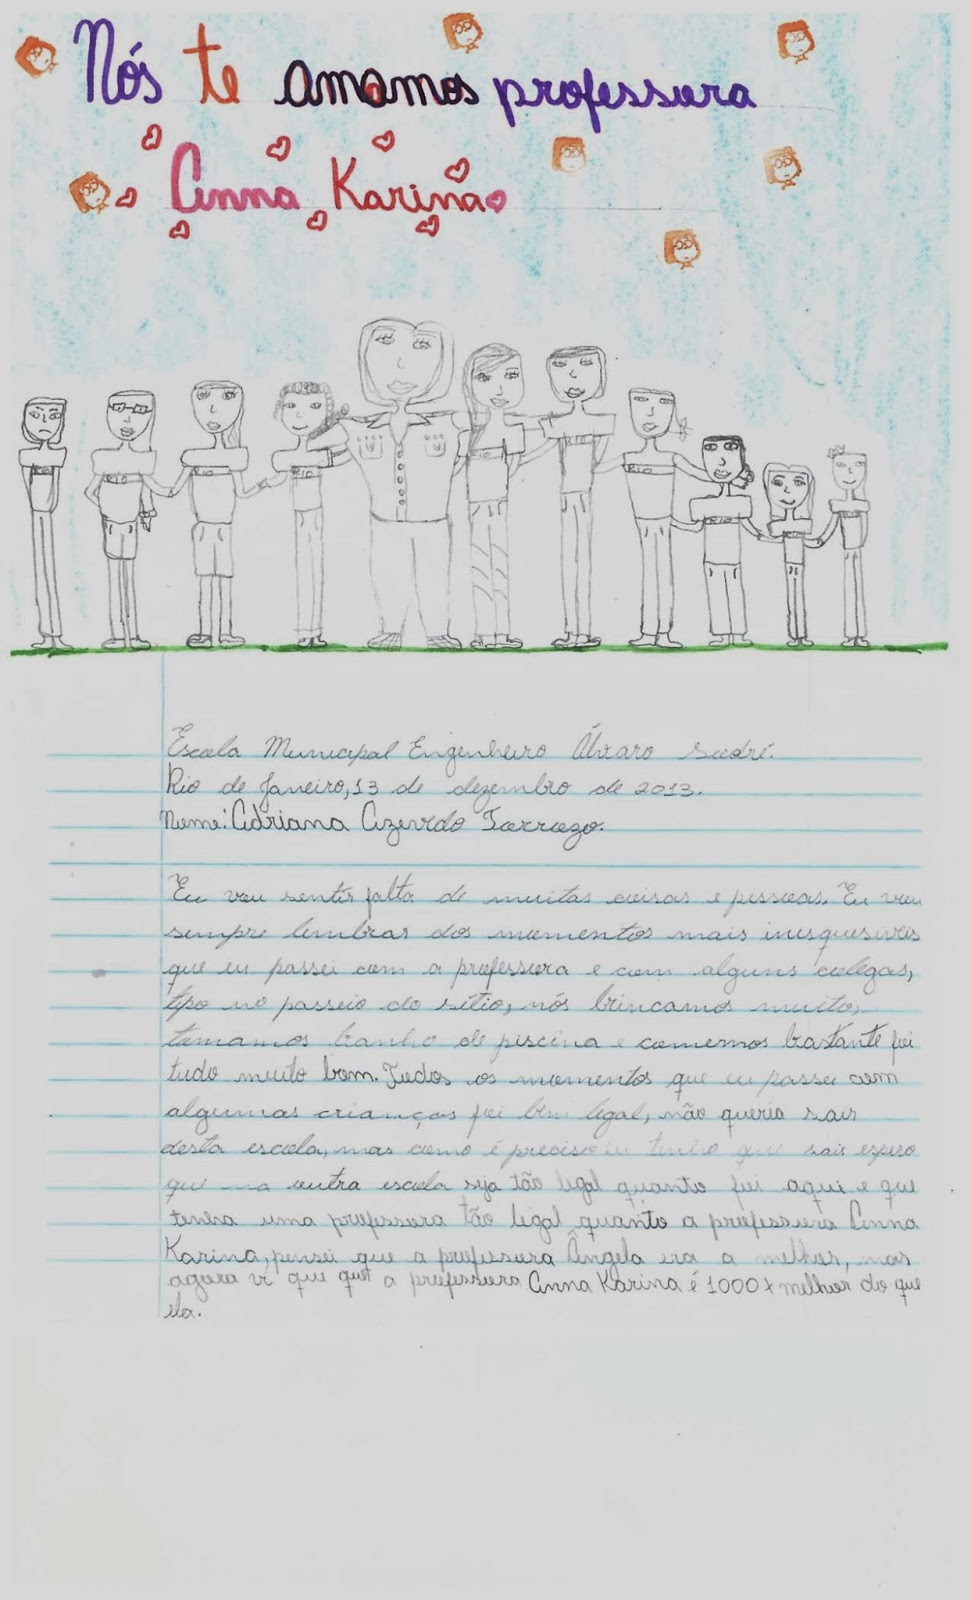 Nós te amamos professora
Anna Karina
RIO
RIO
RIO
RIO
RIO
RIO
RIO
Escola Municipal Engenheiro Álvaro Sodré.
Rio de Janeiro, 13 de dezembro de 2013.
Nome: Adriana Azevedo Tarrazo.
Eu vou sentir falta de muitas coisas e pessoas. Eu vou
sempre lembrar dos momentos mais inesquesiveis
que eu passei com a professora e com alguns colegas,
tipo no passeio do sítio, nós brincamos muito,
tomamos banho de piscina e comemos bastante foi
tudo muito bom. Todos os momentos que eu passei com
algumas crianças foi bem legal, não queria sair
desta escola, mas como é preciso eu tenho que sair espero
que na outra escola seja tão legal quanto foi aqui e que
tenha uma professora tão legal quanto a professora Anna
Karina, pensei que a professora Ângela era a melhor, mas
agora vi que que a professora Anna Karina é 1000 x melhor do que
ela.